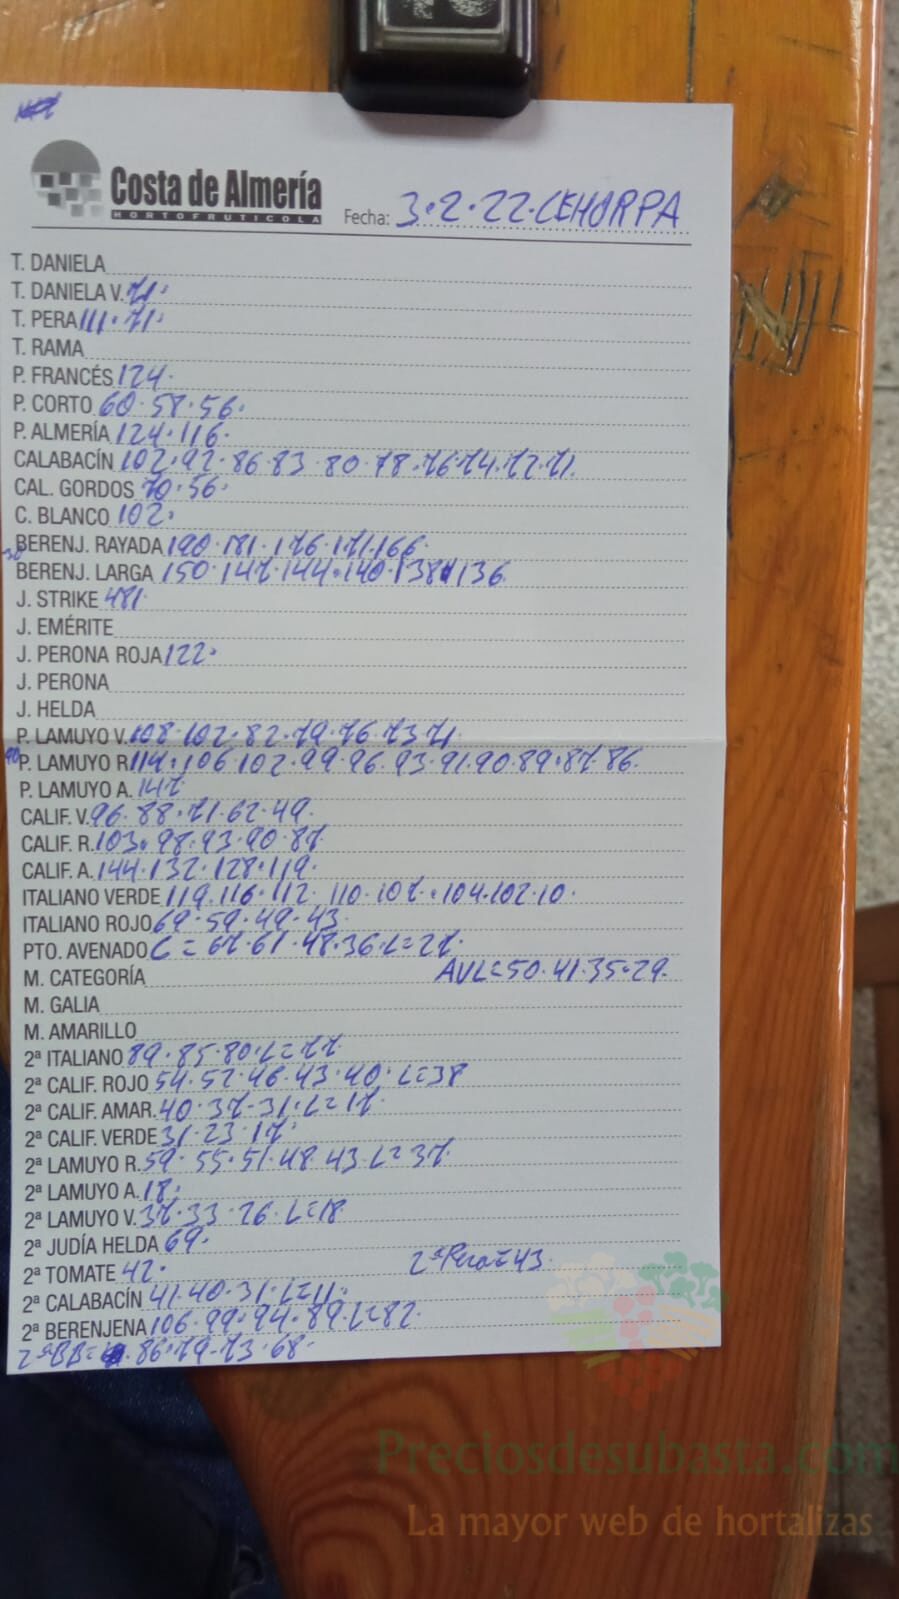 Costa de Almería
HORTOFRUTICOLA
Fecha: 3.2.22.CEHORPA
T. DANIELA
T. DANIELA V. 71.
T. PERA 111.71.
T. RAMA
P. FRANCÉS 124.
P. CORTO 60.58.56.
P. ALMERÍA 124.116.
CALABACÍN 102.92.86.83.80.78.76.74.72.71.
CAL. GORDOS 70.56.
C. BLANCO 102.
BERENJ. RAYADA 190.181.176.171.166.
BERENJ. LARGA 150.147.144.140.138.136
J. STRIKE 481.
J. EMÉRITE
J. PERONA ROJA 122.
J. PERONA
J. HELDA
P. LAMUYO V. 108.102.82.79.76.73.71.
P. LAMUYO R. 114.106.102.99.96.93.91.90.89.87.86.
P. LAMUYO A. 147
CALIF. V. 96.88.71.62.49.
CALIF. R. 103.98.93.90.87
CALIF. A. 144.132.128.119.
ITALIANO VERDE 119.116.112.110.107.104.102.10.
ITALIANO ROJO 69.59.49.43.
PTO. AVENADO C=67.61.48.36.L=27.
M. CATEGORÍA AVL=50.41.35.29.
M. GALIA
M. AMARILLO
2ª ITALIANO 89.85.80.L=77
2ª CALIF. ROJO 54.52.46.43.40.L=38
2ª CALIF. AMAR. 40.37.31.L=17.
2ª CALIF. VERDE 31.23.17.
2ª LAMUYO R. 59.55.51.48.43.L=37.
2ª LAMUYO A. 18.
2ª LAMUYO V. 37.33.26.L=18
2ª JUDÍA HELDA 69.
2ª TOMATE 42. 2ªPera=43.
2ª CALABACÍN 41.40.31.L=11.
2ª BERENJENA 106.99.94.89.L=82.
2ªBB= 86.79.73.68.
Preciosdesubasta.com
La mayor web de hortalizas